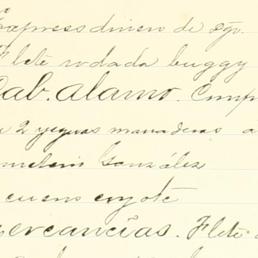 Express dinero de
Flete rodada buggy
Cab. alamo. Comp
2 yeguas manaderas a
González
cuero coyote
mercancías. Flete